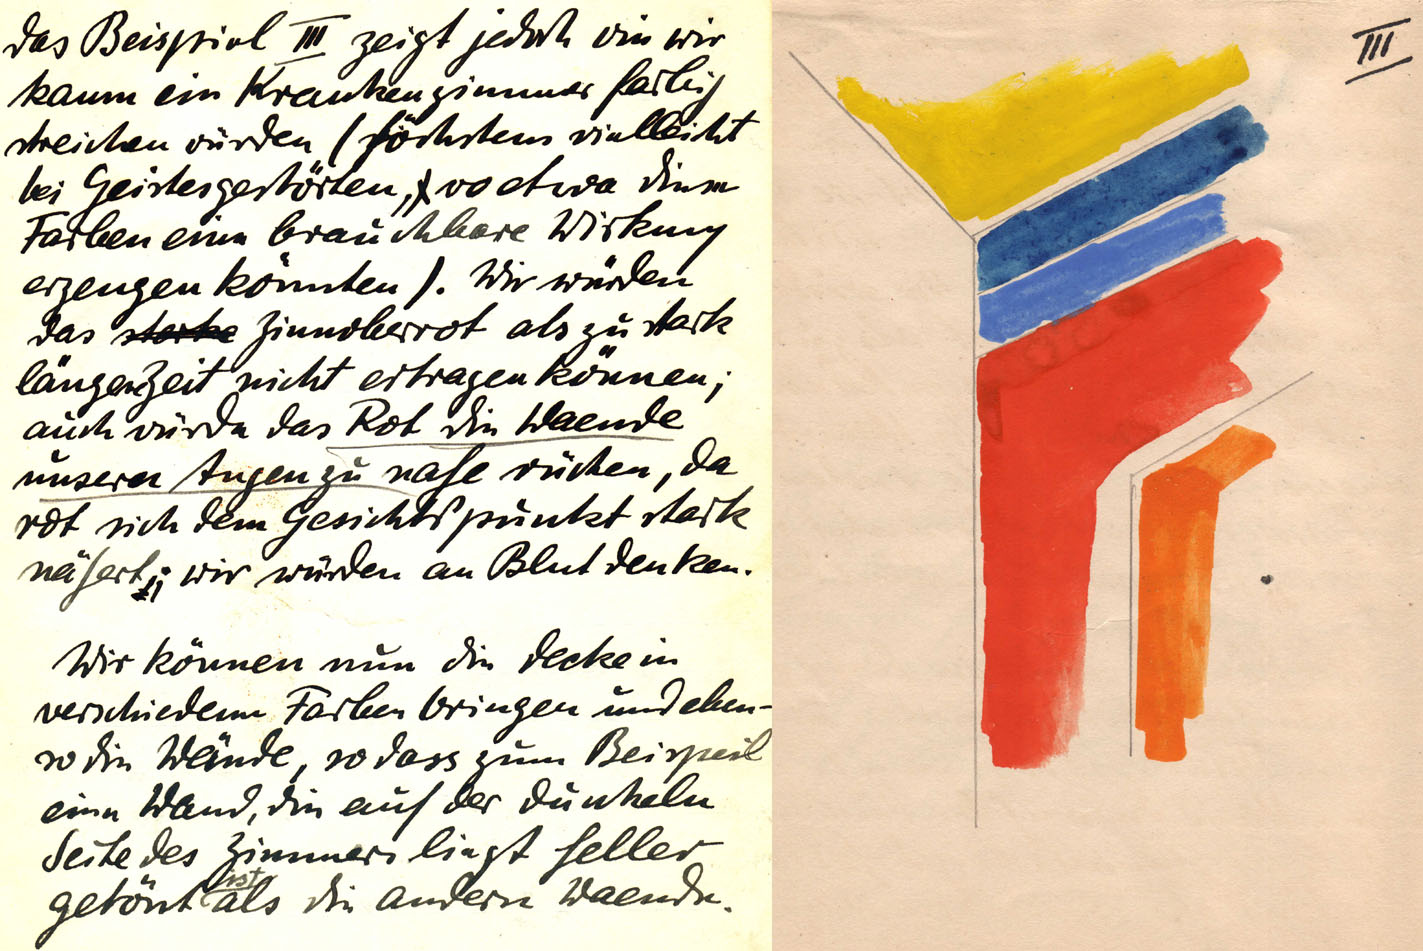 das Beispiel III zeigt jedoch wie wir
kaum ein Krankenzimmer farbig
streichen würden (höchstens vielleicht
bei Geistesgestörten, wo etwa diese
Farben eine brauchbare Wirkung
erzeugen könnten). Wir würden
das starke Zinnoberrot als zu stark
längere Zeit nicht ertragen können;
auch würde das Rot die Waende
unseren Augen zu nahe rücken, da
rot sich dem Gesichtspunkt stark
nähert; wir würden an Blut denken.
Wir können nun die Decke in
verschiedene Farben bringen und eben-
so die Wände, so dass zum Beispeil
eine Wand, die auf der dunkeln
Seite des Zimmers liegt heller
getönt ist als die andern Waende.
III